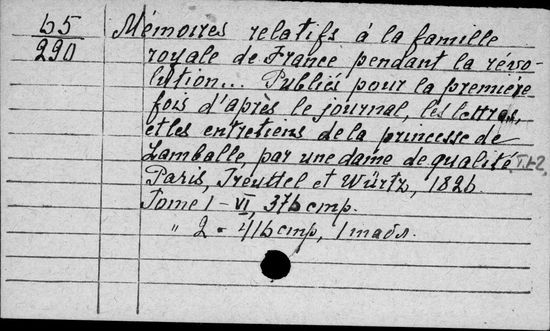 b5
290
Mémoires relatifs á la famille
royale de France pendant la révo-
lution... Publiés pour la première
fois d'après le journal, les lettres,
et les entretiens de la princesse de
Lamballe, par une dame de qualité T.1-2,
Paris, Treuttel et Würtz, 1826.
Tome 1 - VI, 376 стр.
" 2 - 416 стр, 1 табл.